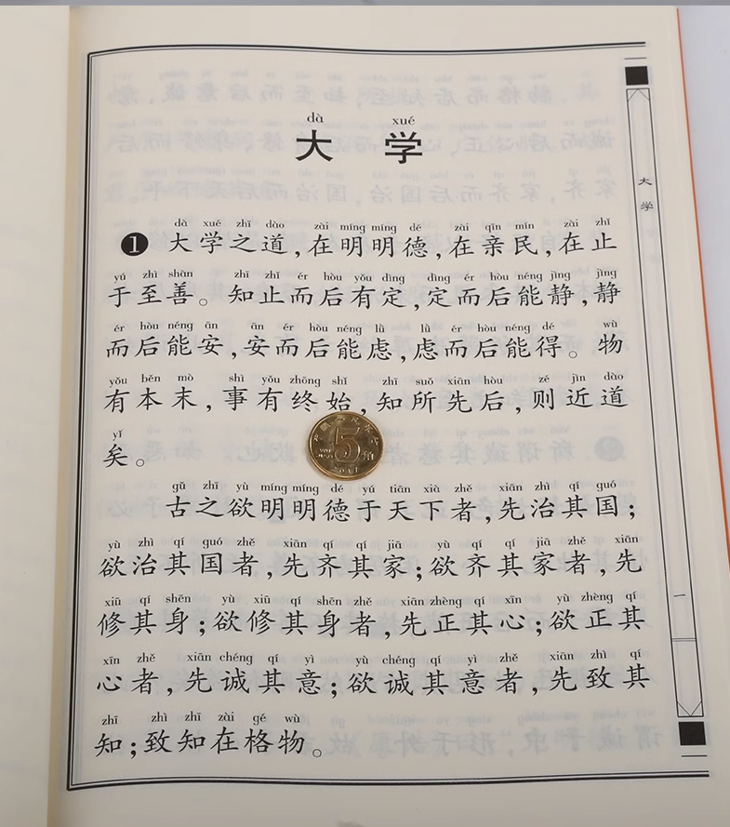 dà xué
大学
dà xué zhī dào zài míng míng dé zài qīn mín zài zhǐ
❶ 大学之道,在明明德,在亲民,在止
yú zhì shàn zhī zhǐ ér hòu yǒu dìng dìng ér hòu néng jìng jìng
于至善。知止而后有定,定而后能静,静
ér hòu néng ān ān ér hòu néng lǜ lǜ ér hòu néng dé wù
而后能安,安而后能虑,虑而后能得。物
yǒu běn mò shì yǒu zhōng shǐ zhī suǒ xiān hòu zé jìn dào
有本末,事有终始,知所先后,则近道
yǐ
矣。
gǔ zhī yù míng míng dé yú tiān xià zhě xiān zhì qí guó
古之欲明明德于天下者,先治其国;
yù zhì qí guó zhě xiān qí qí jiā yù qí qí jiā zhě xiān
欲治其国者,先齐其家;欲齐其家者,先
xiū qí shēn yù xiū qí shēn zhě xiān zhèng qí xīn yù zhèng qí
修其身;欲修其身者,先正其心;欲正其
xīn zhě xiān chéng qí yì yù chéng qí yì zhě xiān zhì qí
心者,先诚其意;欲诚其意者,先致其
zhī zhì zhī zài gé wù
知;致知在格物。
大学
一
5 角